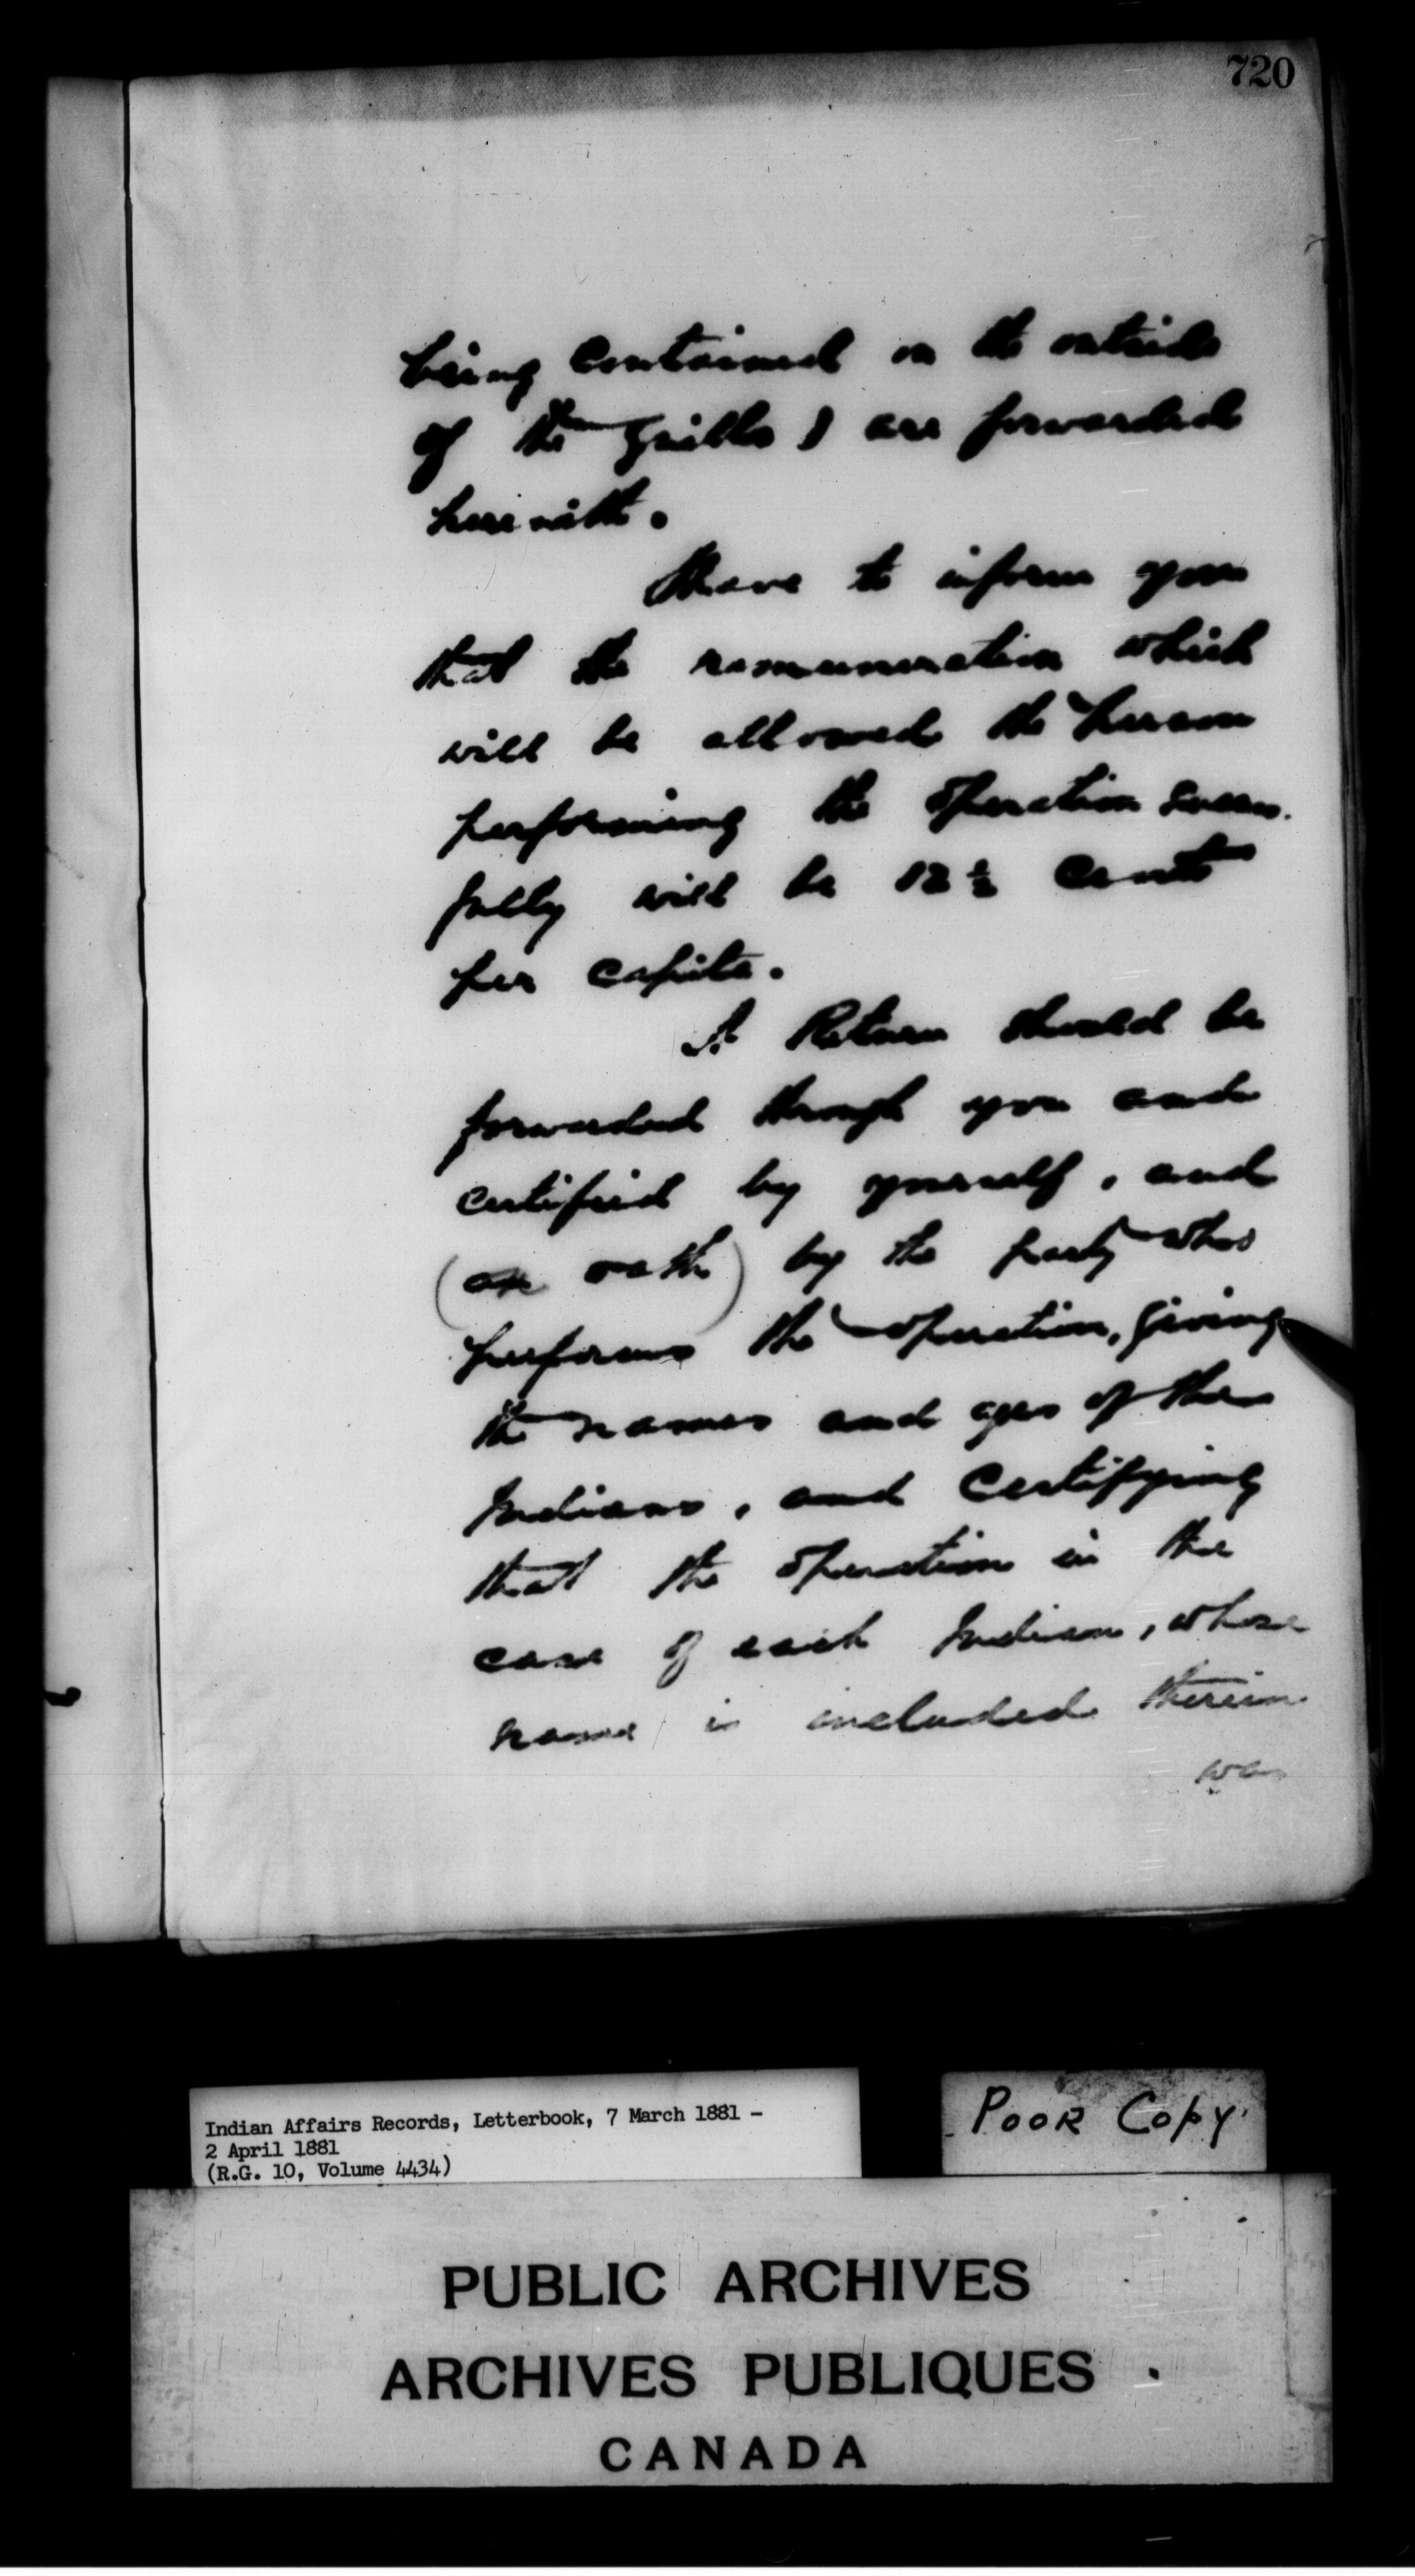 720
being contained on the outside
of the quills) are forwarded
herewith.
I have to inform you
that the remuneration which
will be allowed the person
performing the operation success-
fully will be 12½ cents
per capita.
A Return should be
forwarded through you and
certified by yourself, and
(on oath) by the party who
performs the operation, giving
the names and ages of the
Indians, and certifying
that the operation in the
case of each Indian, whose
name is included therein
was
Indian Affairs Records, Letterbook, 7 March 1881 -
2 April 1881
(R.G. 10, Volume 4434)
POOR COPY.
PUBLIC ARCHIVES
ARCHIVES PUBLIQUES
CANADA